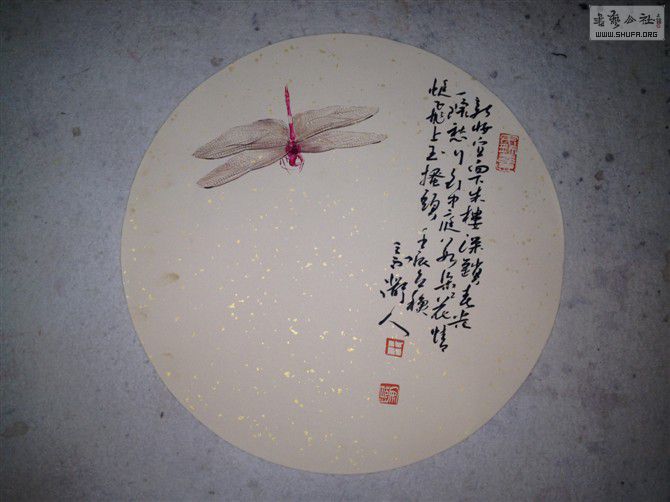 書藝公社
WWW.SHUFA.ORG
新妝宜面下朱樓深鎖春光
一院愁行到中庭數朵花情
蜓飛上玉搔頭壬辰冬
人